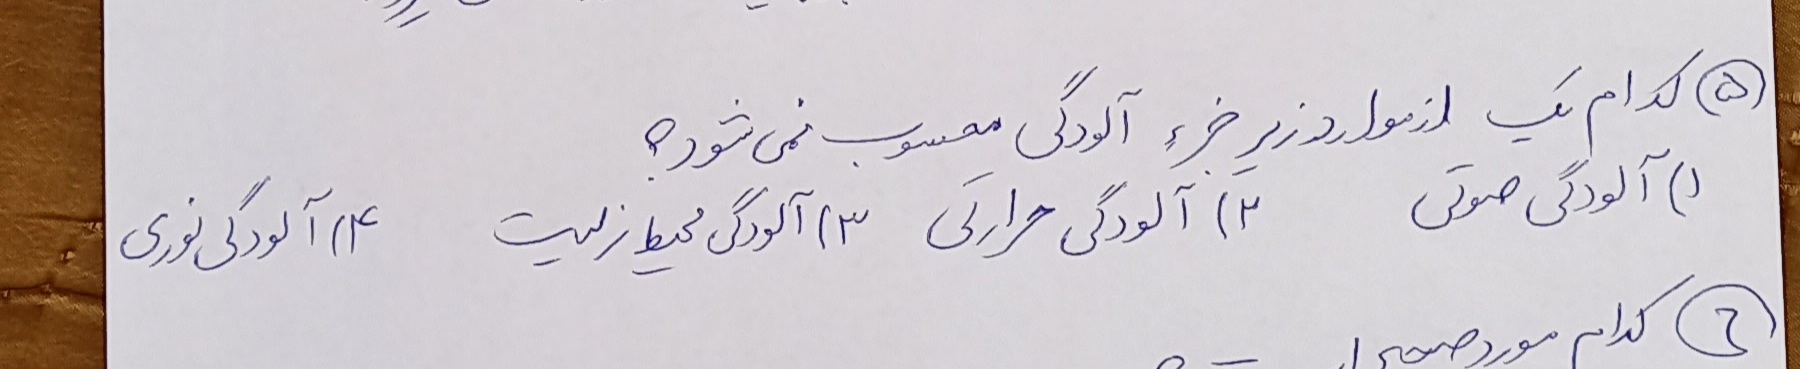 ۵) کدام یک از موارد زیر جزء آلودگی محسوب نمی شود؟
۱) آلودگی صوتی ۲) آلودگی حرارتی ۳) آلودگی محیط زیست ۴) آلودگی نوری
۶) کدام مورد صحیح است؟